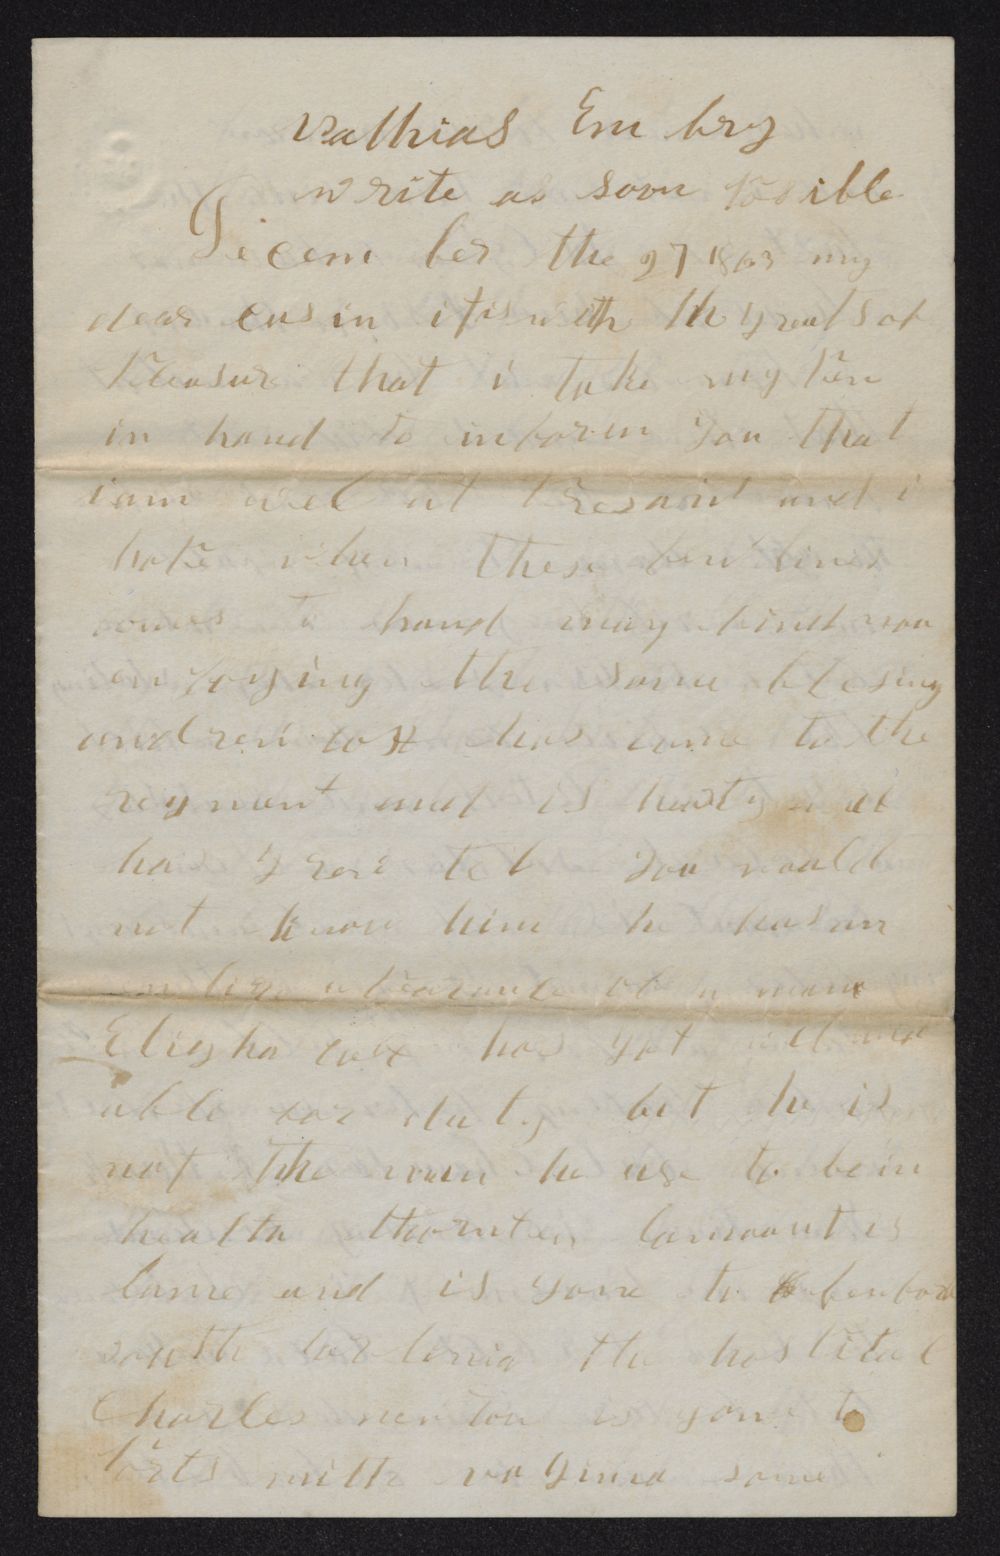 Mathias Em bry
write as soon Possible
Dicem ber the 27 1863 my
dear cusin it is with the greatest of
Pleasure that i take my Pen
in hand to inform you that
i am well at Presant and i
hope when these few lines
comes to hand may find you
en joying the same blesing
and has come to the
regment and is harty and
has grone tel you would
not know him he has an
apearance of a man
Eligha cox has got well and
able for duty but he is
not the man he use to be in
health thornton Lamount is
lame and is gone to
south the hospital
Charles newton is gone to
Portsmith va ginia some